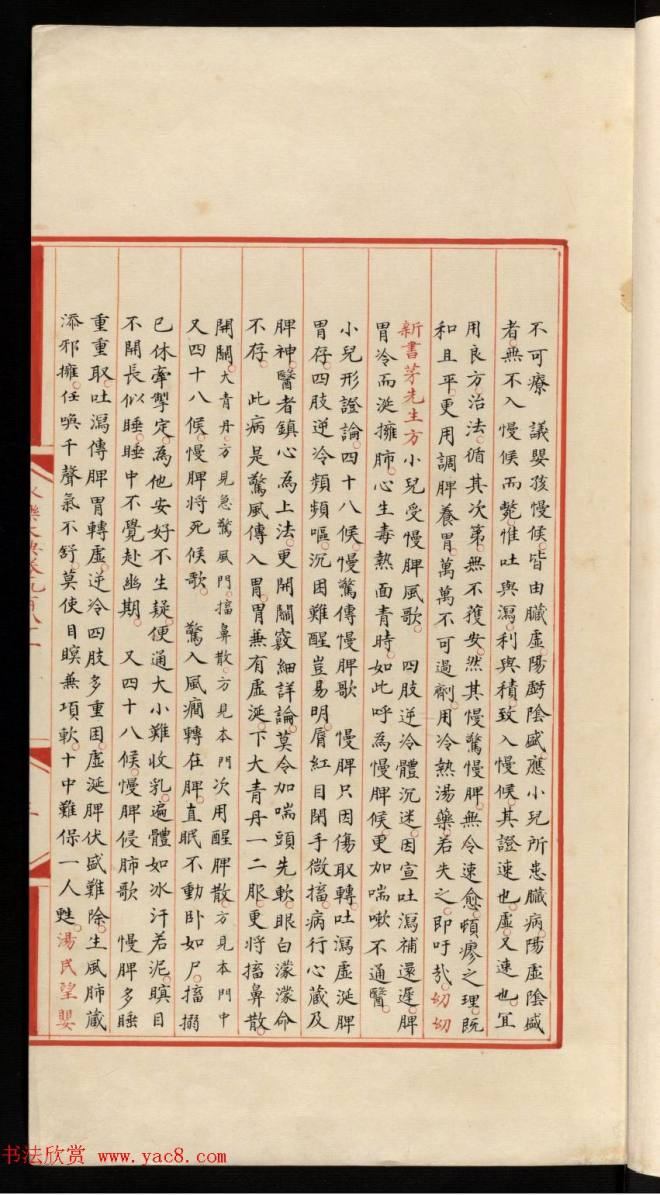 不可療　議嬰孩慢候皆由臟虛陽虧陰盛應小兒所患臟病陽虛陰盛
者無不入慢候而斃惟吐與瀉利與積致入慢候其證速也虛又速也宜
用良方治法循其次第無不獲安然其慢驚慢脾無令速愈頓瘳之理既
和且平更用調脾養胃萬萬不可過劑用冷熱湯藥若失之即吁哉切切
新書茅先生方小兒受慢脾風歌　四肢逆冷體沉迷因宣吐瀉補還遲脾
胃冷而涎擁肺心生毒熱面青時如此呼為慢脾候更加喘嗽不通醫
小兒形證論四十八候慢驚傳慢脾歌　慢脾只因傷取轉吐瀉虛涎脾
胃存四肢逆冷頻頻嘔沉困難醒豈易明唇紅目閉手微搐病行心藏及
脾神醫者鎮心為上法更開關竅細詳論莫令加喘頭先軟眼白濛濛命
不存　此病是驚風傳入胃胃兼有虛涎下大青丹一二服更將搐鼻散
開關大青丹方見急驚風門搐鼻散方見本門次用醒脾散方見本門中
又四十八候慢脾將死候歌　驚入風癎轉在脾直眠不動卧如尸搐搦
已休牽掣定為他安好不生疑便通大小難收乳遍體如冰汗若泥瞑目
不開長似睡睡中不覺赴幽期　又四十八候慢脾侵肺歌　慢脾多睡
重重取吐瀉傳脾胃轉虛逆冷四肢多重困虛涎脾伏盛難除生風肺藏
添邪擁任喚千聲氣不舒莫使目瞑兼項軟十中難保一人甦湯氏望嬰
永樂大典卷九百八十一
书法欣赏 www.yac8.com